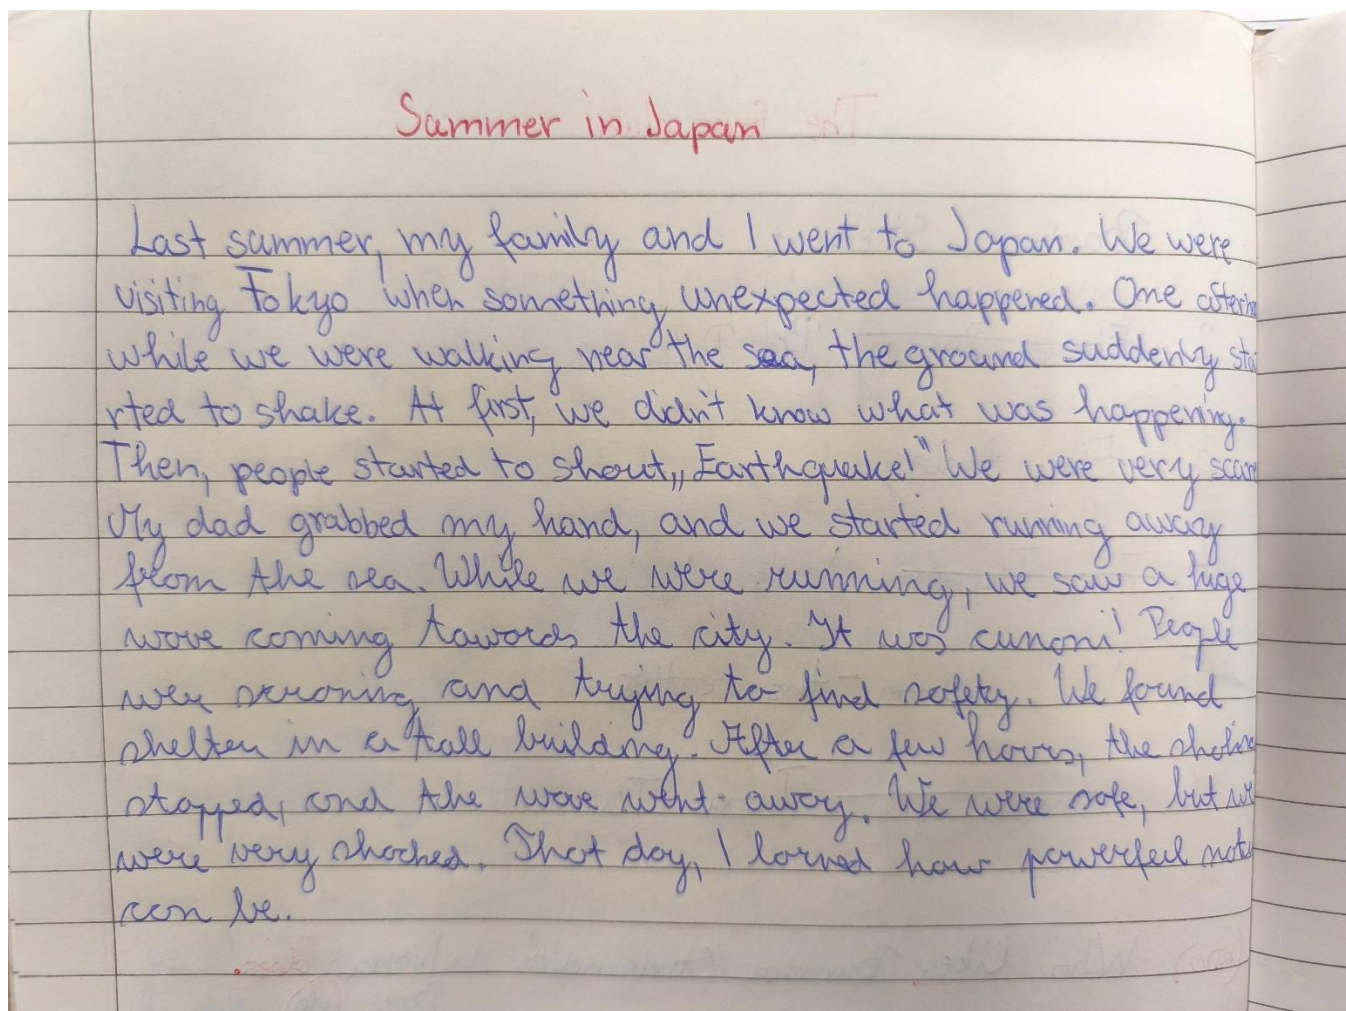 Summer in Japan
Last summer, my family and I went to Japan. We were
visiting Tokyo when something unexpected happened. One aftern
while we were walking near the sea, the ground suddenly sta
rted to shake. At first, we didn't know what was happening.
Then, people started to shout „Earthquake!" We were very scar
My dad grabbed my hand, and we started running away
from the sea. While we were running, we saw a huge
wave coming towards the city. It was cunami! People
were scraming and trying to find safety. We found
shelter in a tall building. After a few hours, the shaking
stopped, and the wave went away. We were safe, but we
were very shocked. That day, I lorned how powerful natu
can be.